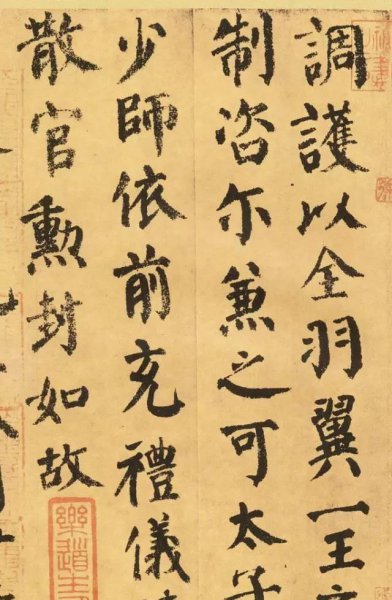 調護以全羽翼一王
制咨尔兼之可太子
少師依前充禮儀
散官勲封如故
樂道主